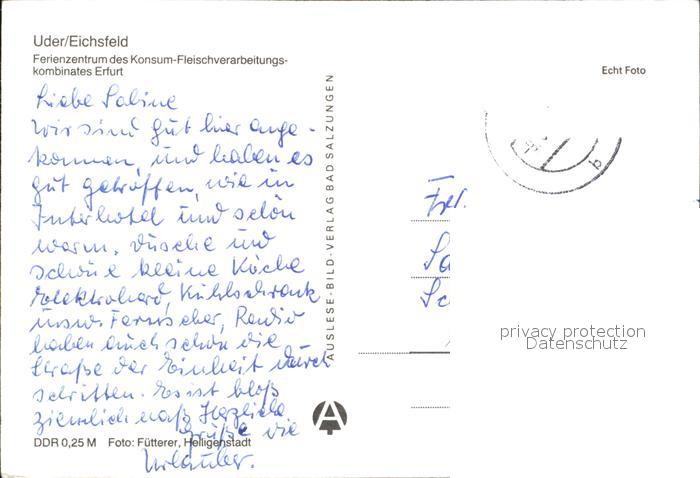 Uder/Eichsfeld
Ferienzentrum des Konsum-Fleischverarbeitungs-
kombinates Erfurt
Echt Foto
Liebe Sabine
Wir sind gut hier ange-
kommen, und haben es
gut getroffen, wie in
Interhotel und schön
warm, Dusche und
schöne kleine Küche
Elektroherd, Kühlschrank
usw. Fernseher, Radio
haben auch schon die
Straße der Einheit durch
schritten. Es ist bloß
ziemlich naß Herzliche
Grüße die
Urlauber.
DDR 0,25 M Foto: Fütterer, Heiligenstadt
AUSLESE-BILD-VERLAG BAD SALZUNGEN
Frl.
Sa
Sc
b
privacy protection
Datenschutz